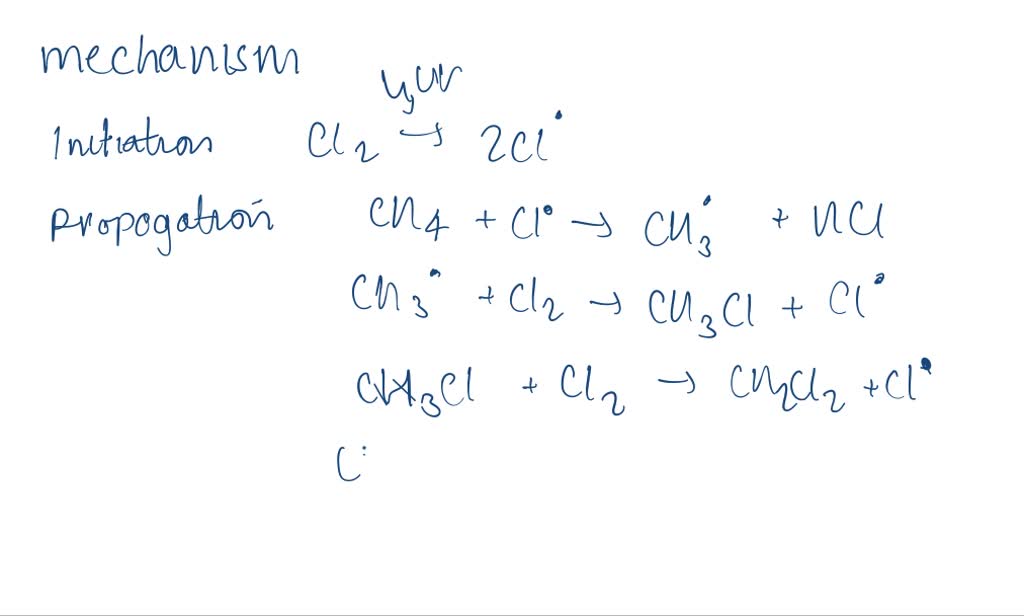 mechanism
Initiation Cl2 → 2Cl•
UV
Propogation CH4 + Cl• → CH3• + HCl
CH3• + Cl2 → CH3Cl + Cl•
CH3Cl + Cl2 → CH2Cl2 + Cl•
C